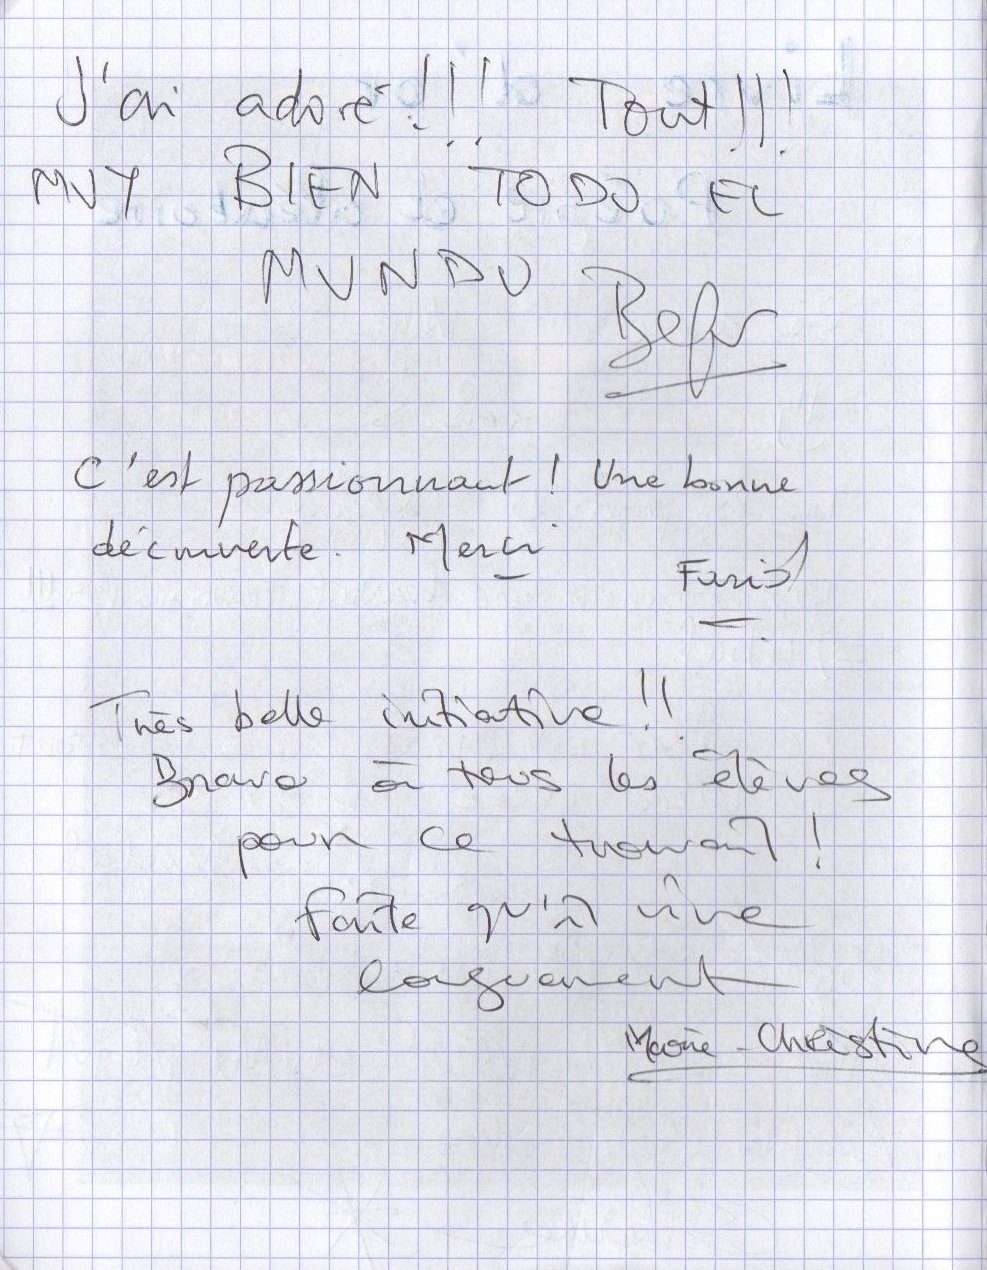 J'ai adoré!!! Tout!!!
MUY BIEN TODO EL
MUNDO
C'est passionnant! Une bonne
découverte. Merci
Farid
Très belle initiative!!
Bravo à tous les élèves
pour ce travail!
Faite qu'il vive
longuement
Marie-Christine